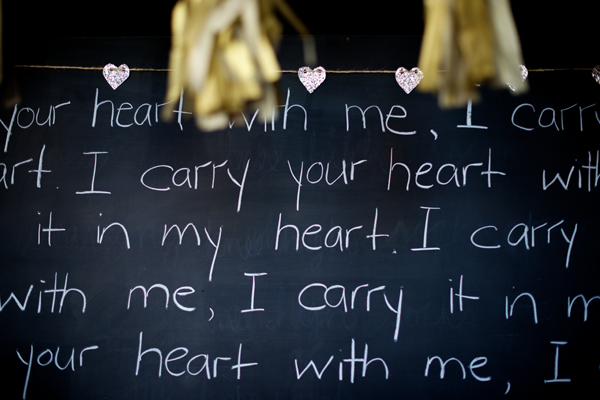 your heart with me, I carry
art. I carry your heart with
it in my heart. I carry
with me, I carry it in m
your heart with me, I